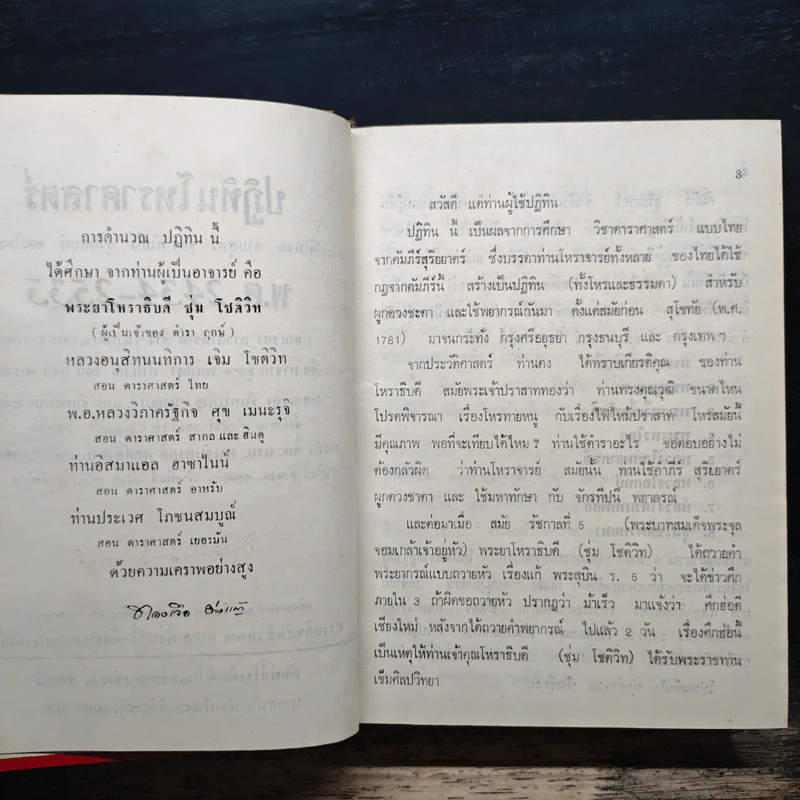 การคำนวณ ปฏิทิน นี้
ได้ศึกษา จากท่านผู้เป็นอาจารย์ คือ
พระยาโหราธิบดี ชุ่ม โชติวิท
(ผู้เป็นเจ้าของ ตำรา ฤกษ์)
หลวงอนุสิทานนทิการ เจิม โชติวิท
สอน ดาราศาสตร์ ไทย
พ.อ.หลวงวิภาครัฐกิจ ศุข เมนะรุจิ
สอน ดาราศาสตร์ สากล และ ฮินดู
ท่านอิสมาแอล ฮาซาไนน์
สอน ดาราศาสตร์ อาหรับ
ท่านประเวศ โภชนสมบูณ์
สอน ดาราศาสตร์ เยอรมัน
ด้วยความเคราพอย่างสูง
3
สวัสดี แด่ท่านผู้ใช้ปฏิทิน
ปฏิทิน นี้ เป็นผลจากการศึกษา วิชาดาราศาสตร์ แบบไทย
จากคัมภีร์สุริยยาตร์ ซึ่งบรรดาท่านโหราจารย์ทั้งหลาย ของไทยได้ใช้
กฎจากคัมภีร์นี้ สร้างเป็นปฏิทิน (ทั้งโหรและธรรมดา) สำหรับ
ผูกดวงชะตา และใช้พยากรณ์กันมา ตั้งแต่สมัยก่อน สุโขทัย (พ.ศ.
1781) มาจนกระทั่ง กรุงศรีอยุธยา กรุงธนบุรี และ กรุงเทพฯ
จากประวัติศาสตร์ ท่านคง ได้ทราบเกียรติคุณ ของท่าน
โหราธิบดี สมัยพระเจ้าปราสาททองว่า ท่านทรงคุณวุฒิ ขนาดไหน
โปรดพิจารณา เรื่องโหรทายหนู กับเรื่องไฟไหม้ปราสาท โหรสมัยนี้
มีคุณภาพ พอที่จะเทียบได้ไหม? ท่านใช้ตำราอะไร ขอตอบอย่างไม่
ต้องกลัวผิด ว่าท่านโหราจารย์ สมัยนั้น ท่านใช้คำภีร์ สุริยยาตร์
ผูกดวงชาตา และ ใช้มหาทักษา กับ จักรทีปนี พยากรณ์
และต่อมาเมื่อ สมัย รัชกาลที่ 5 (พระบาทสมเด็จพระจุล
จอมเกล้าเจ้าอยู่หัว) พระยาโหราธิบดี (ชุ่ม โชติวิท) ได้ถวายคำ
พยากรณ์แบบถวายหัว เรื่องแก้ พระสุบิน ร. 5 ว่า จะได้ข่าวศึก
ภายใน 3 ถ้าผิดขอถวายหัว ปรากฏว่า ม้าเร็ว มาแจ้งว่า ศึกฮ่อตี
เชียงใหม่ หลังจากได้ถวายคำพยากรณ์ ไปแล้ว 2 วัน เรื่องศึกฮ่อนี้
เป็นเหตุให้ท่านเจ้าคุณโหราธิบดี (ชุ่ม โชติวิท) ได้รับพระราชทาน
เข็มศิลปวิทยา